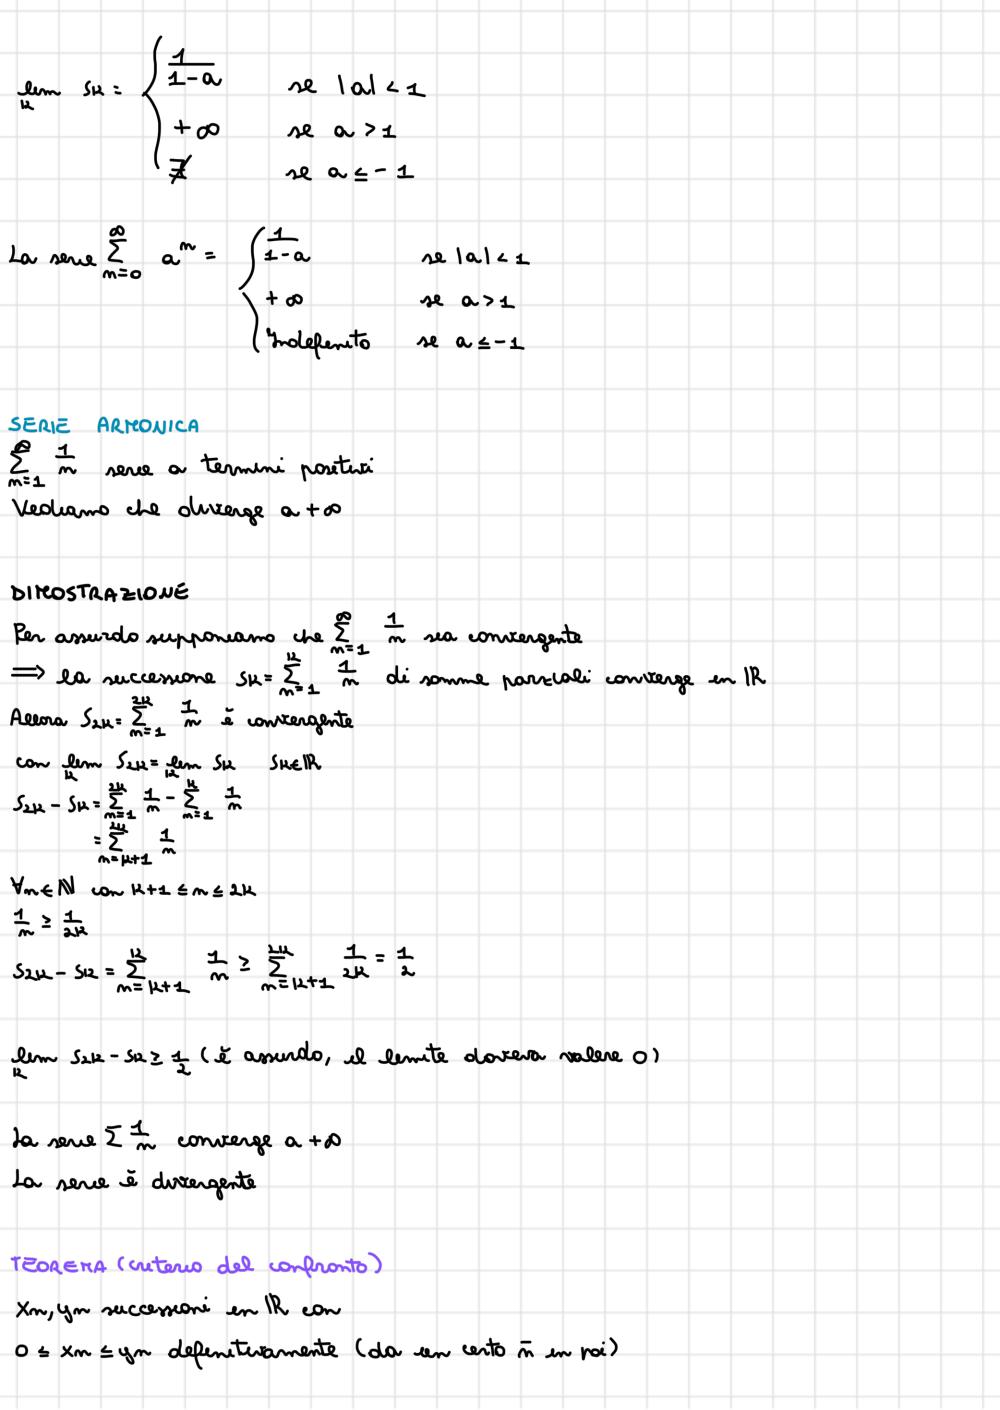 lim_k Sk = { 1/(1-a) se |a| < 1
+∞ se a > 1
∄ se a ≤ -1
La serie ∑_{n=0}^{∞} a^n = { 1/(1-a) se |a| < 1
+∞ se a > 1
Indefinito se a ≤ -1
SERIE ARMONICA
∑_{n=1}^{∞} 1/n serie a termini positivi
Vediamo che diverge a +∞
DIMOSTRAZIONE
Per assurdo supponiamo che ∑_{n=1}^{∞} 1/n sia convergente
⟹ la successione Sk = ∑_{n=1}^{k} 1/n di somme parziali converge in ℝ
Allora S2k = ∑_{n=1}^{2k} 1/n è convergente
con lim_k S2k = lim_k Sk Sk∈ℝ
S2k - Sk = ∑_{n=1}^{2k} 1/n - ∑_{n=1}^{k} 1/n
= ∑_{n=k+1}^{2k} 1/n
∀n∈ℕ con k+1 ≤ n ≤ 2k
1/n ≥ 1/2k
S2k - Sk = ∑_{n=k+1}^{k} 1/n ≥ ∑_{n=k+1}^{2k} 1/2k = 1/2
lim_k S2k - Sk ≥ 1/2 (è assurdo, il limite doveva valere 0)
La serie ∑ 1/n converge a +∞
La serie è divergente
TEOREMA (criterio del confronto)
Xn, yn successioni in ℝ con
0 ≤ xn ≤ yn definitivamente (da un certo n̄ in poi)